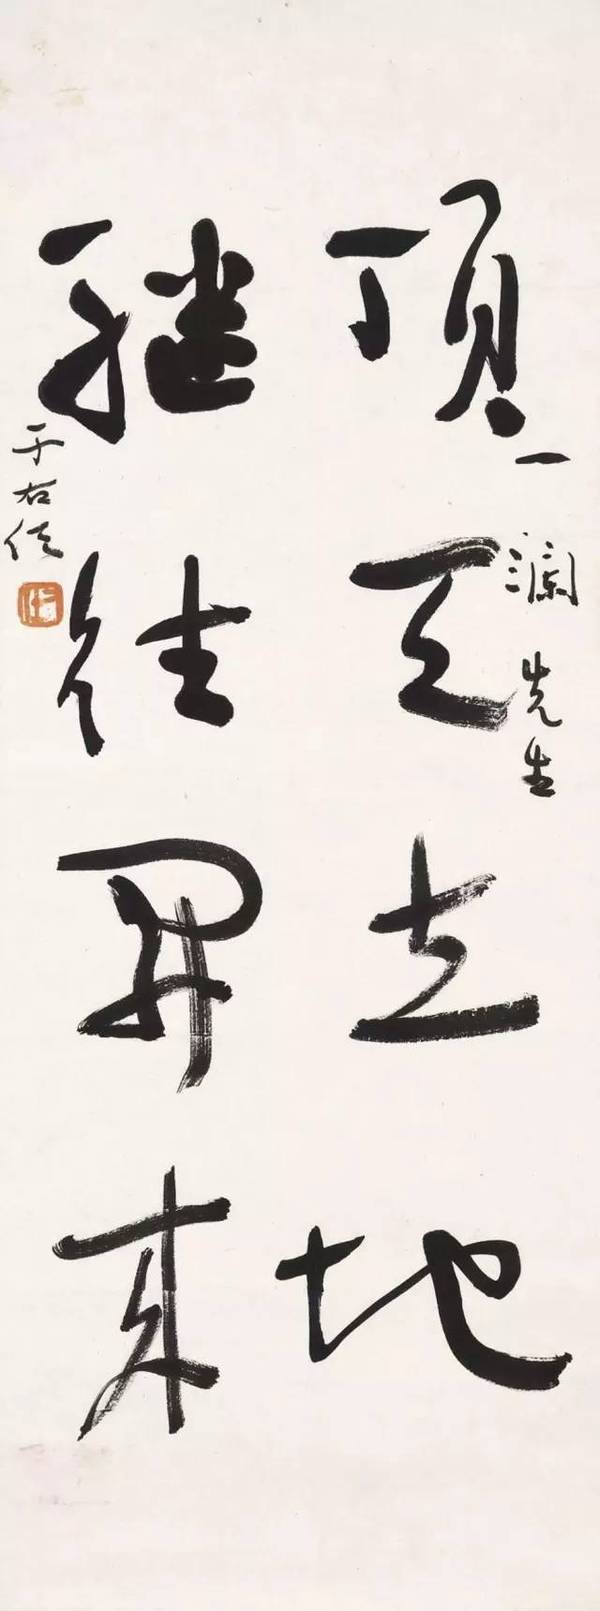 頂天立地
繼往開来
一瀾先生
于右任